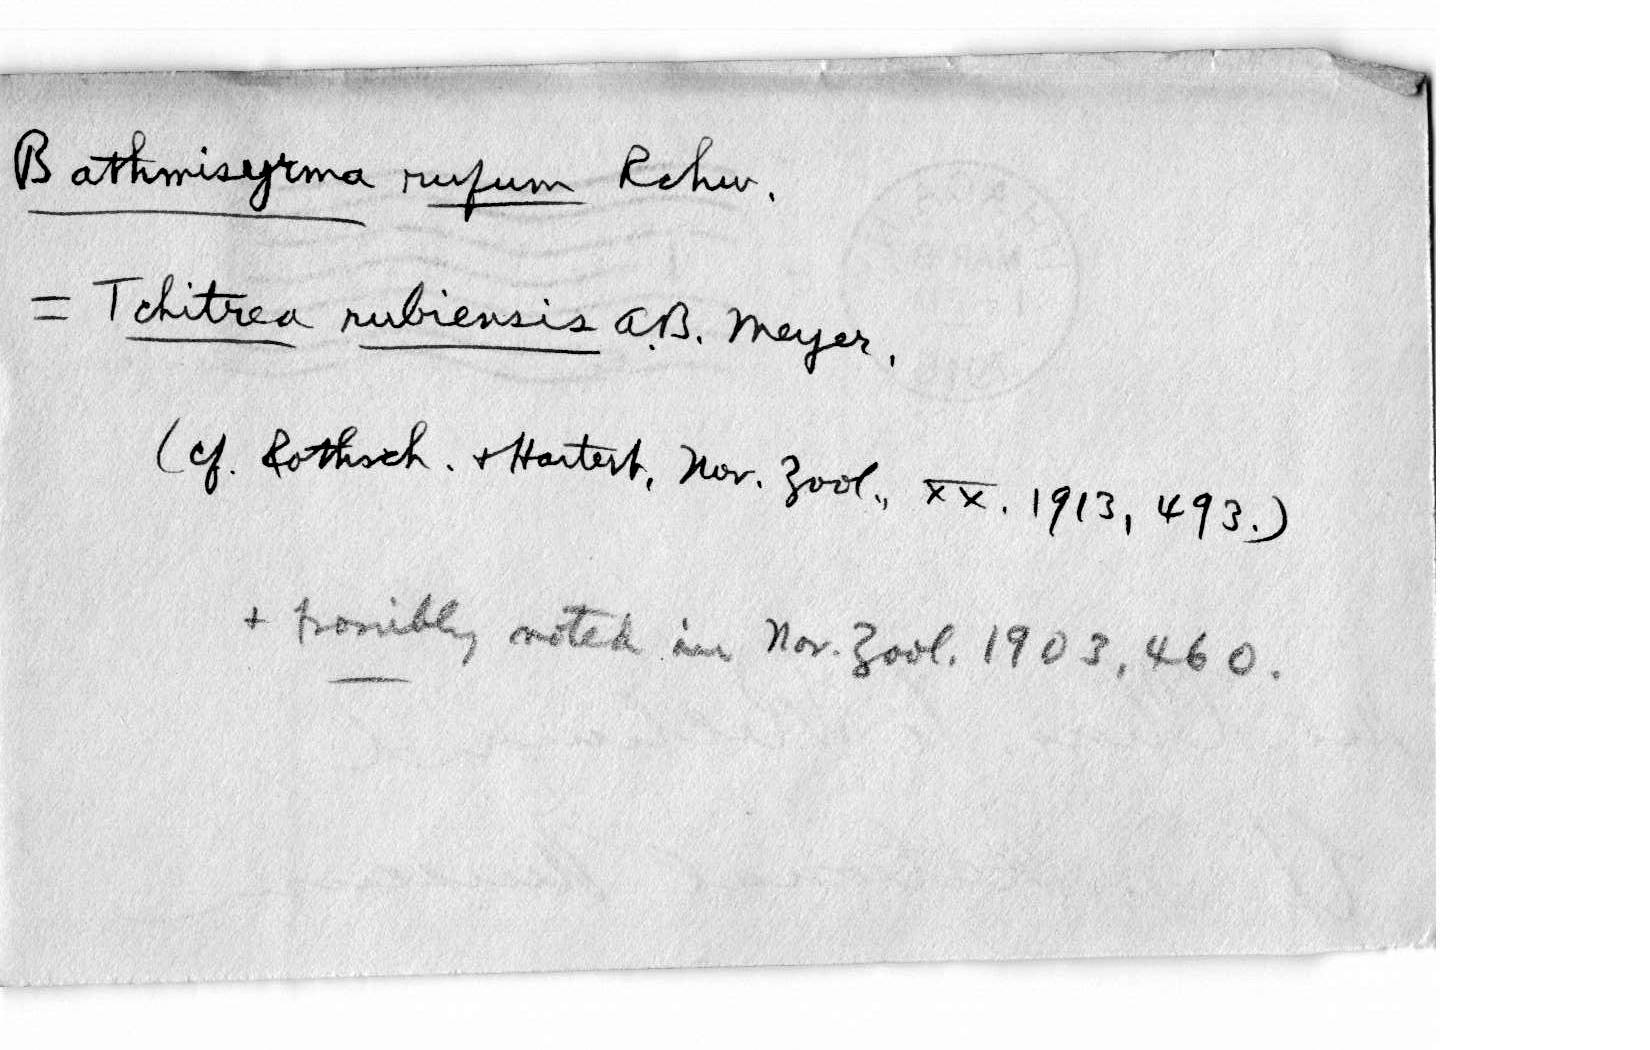 Bathmisyrma rufum Rchw.
= Tchitrea rubiensis A.B. Meyer.
(cf. Rothsch. + Hartert, Nov. Zool., XX. 1913, 493.)
+ possibly noted in Nov. Zool. 1903, 460.